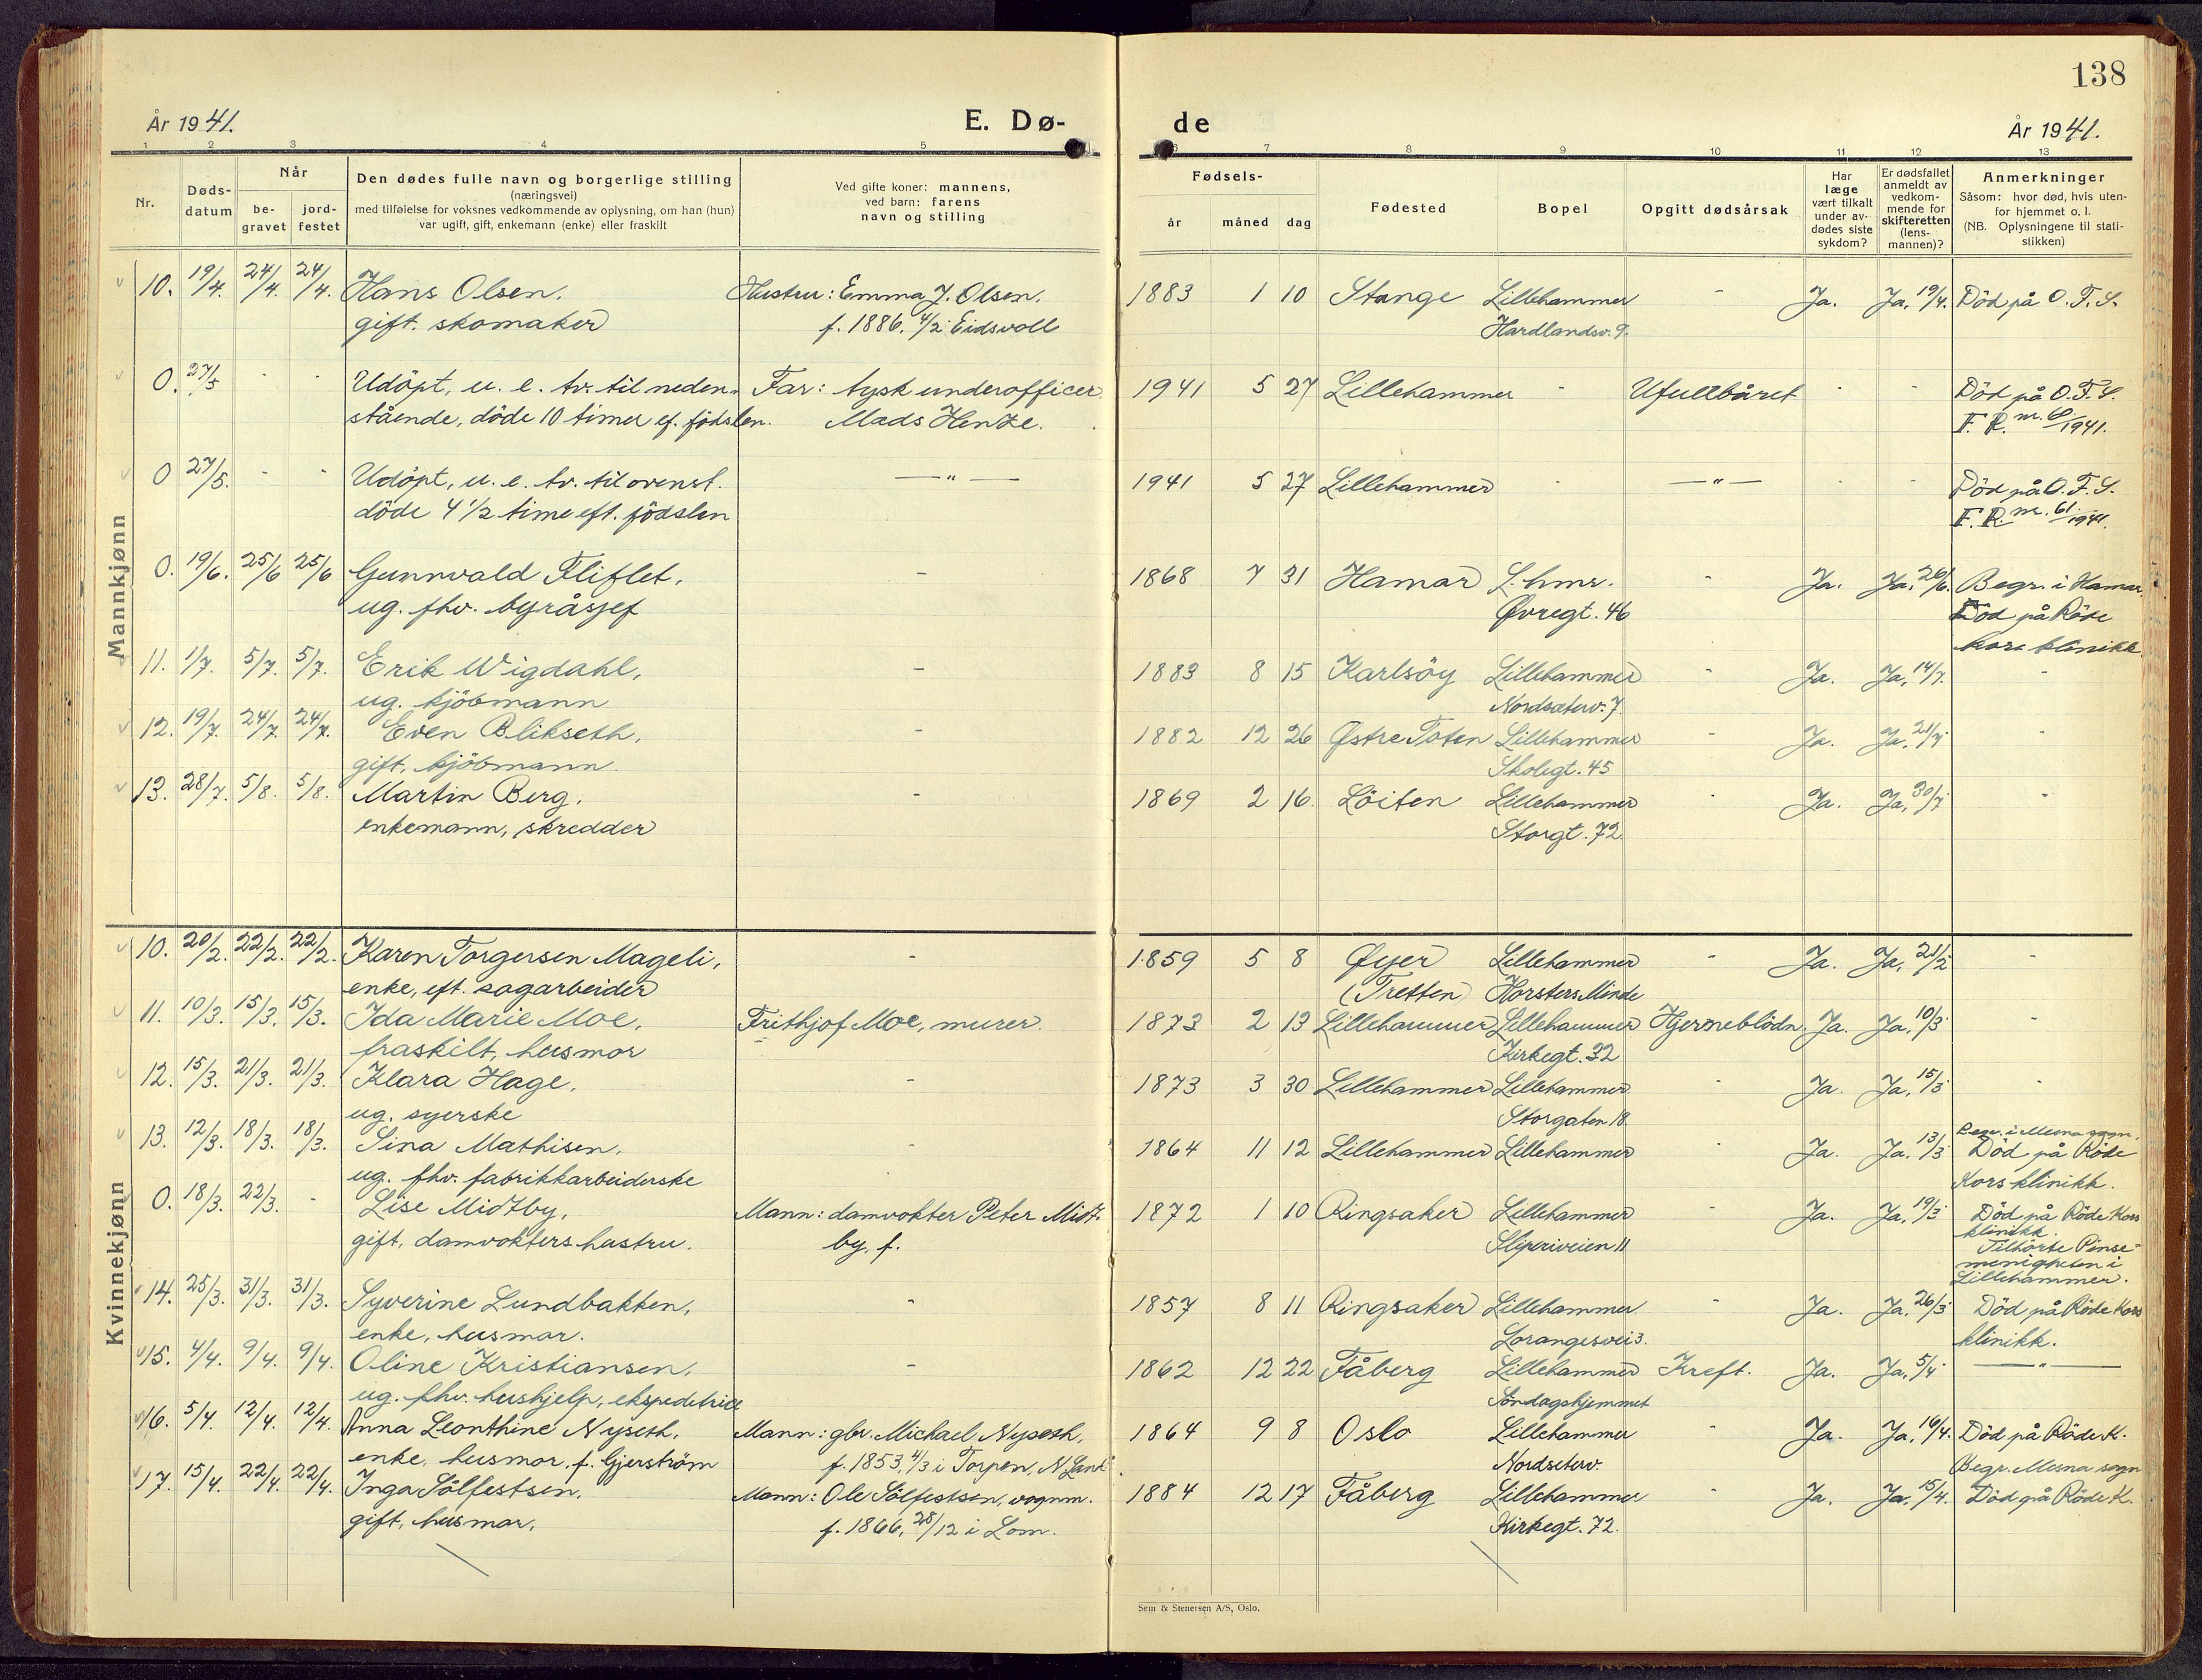 138
År 1941.
E. Dø-
de
År 1941.
1 2 3 4 5
6 7 8 9 10 11 12 13
Nr.
Døds-
datum
Når
be-
gravet
jord-
festet
Den dødes fulle navn og borgerlige stilling
(næringsvei)
med tilføielse for voksnes vedkommende av oplysning, om han (hun)
var ugift, gift, enkemann (enke) eller fraskilt
Ved gifte koner: mannens,
ved barn: farens
navn og stilling
Fødsels-
år måned dag
Fødested
Bopel
Opgitt dødsårsak
Har
læge
vært tilkalt
under av-
dødes siste
sykdom?
Er dødsfallet
anmeldt av
vedkom-
mende for
skifteretten
(lens-
mannen)?
Anmerkninger
Såsom: hvor død, hvis uten-
for hjemmet o. l.
(NB. Oplysningene til stati-
stikken)
Mannkjønn
10. 19/4. 24/4. 24/4. Hans Olsen, Hustru: Emma J. Olsen, 1883 1 10 Stange Lillehammer - Ja. Ja, 19/4. Död på O.F.S.
gift. skomaker f. 1886, 4/2 Eidsvoll Hardlandsv. 9.
0. 27/5 - - Udöpt, u. e. tv. til neden- Far: tysk underofficer 1941 5 27 Lillehammer - Ufullbåret - - Död på O.F.S.
stående, döde 10 timer ef. födslen. Mads Henze. F. R. nr. 60/1941.
0 27/5. - - Udöpt, u. e. tv. til ovenst. — " — 1941 5 27 Lillehammer - — " — - - Död på O.F.S.
döde 4 1/2 time eft. födslen F. R. nr. 61/1941.
0. 19/6. 25/6 25/6 Gunnvald Fliflet, - 1868 7 31 Hamar L.hmr. - Ja. Ja, 20/6. Begr. i Hamar.
ug. fhv. byråsjef Øvregt. 46 Död på Röde
Kors klinikk.
11. 1/7. 5/7. 5/7. Erik Wigdahl, - 1883 8 15 Karlsöy Lillehammer - Ja. Ja, 14/7. -
ug. kjöbmann Nordseterv. 7.
12. 19/7. 24/7. 24/7. Even Blikseth, - 1882 12 26 Østre Toten Lillehammer - Ja. Ja, 21/7 -
gift, kjöbmann. Skolegt. 45
13. 28/7. 5/8. 5/8. Martin Berg, - 1869 2 16 Löiten Lillehammer - Ja. Ja, 30/7 -
enkemann, skredder Storgt. 72.
Kvinnekjønn
10. 20/2. 22/2. 22/2. Karen Torgersen Mageli, - 1859 5 8 Øyer Lillehammer - Ja. Ja, 21/2 -
enke, eft. sagarbeider (Tretten) Horsters Minde
11. 10/3. 15/3. 15/3. Ida Marie Moe, Frithjof Moe, murer. 1873 2 13 Lillehammer Lillehammer Hjerneblödn. Ja. Ja, 10/3 -
fraskilt, husmor Kirkegt. 32
12. 15/3. 21/3. 21/3. Klara Hage, - 1873 3 30 Lillehammer Lillehammer - Ja. Ja, 15/3 -
ug. syerske Storgaten 18.
Begr. i Mesna sogn.
13. 12/3. 18/3. 18/3. Sina Mathisen, - 1864 11 12 Lillehammer Lillehammer - Ja. Ja, 13/3 Död på Röde
ug. fhv. fabrikkarbeiderske Kors klinikk.
0. 18/3. 22/3. - Lise Midtby, Mann: damvokter Peter Midt- 1872 1 10 Ringsaker Lillehammer - Ja. Ja, 19/3 Död på Röde Kors
gift, damvokters hustru. by, f. Sliperiveien 11 klinikk.
Tilhörte Pinse-
menigheten i
Lillehammer.
14. 25/3. 31/3. 31/3. Syverine Lundbakken, - 1857 8 11 Ringsaker Lillehammer - Ja. Ja, 26/3 Död på Röde Kors
enke, husmor. Lorangesvei 3. klinikk.
15. 4/4. 9/4. 9/4. Oline Kristiansen, - 1862 12 22 Fåberg Lillehammer Kreft. Ja. Ja, 5/4 — " —
ug. fhv. hushjelp, ekspeditrice Söndagshjemmet
16. 5/4. 12/4. 12/4. Anna Leonthine Nyseth, Mann: gbr. Michael Nyseth, 1864 9 8 Oslo Lillehammer - Ja. Ja, 16/4. Död på Röde K.
enke, husmor, f. Gjerström f. 1853, 4/3 i Torpen, N. Land. Nordseterv. Begr. Mesna sogn
17. 15/4. 22/4. 22/4. Inga Sölfestsen, Mann: Ole Sölfestsen, vognm. 1884 12 17 Fåberg Lillehammer - Ja. Ja, 15/4. Död på Röde K.
gift, husmor, f. 1866, 28/12 i Lom. Kirkegt. 72.
Sem & Stenersen A/S, Oslo.